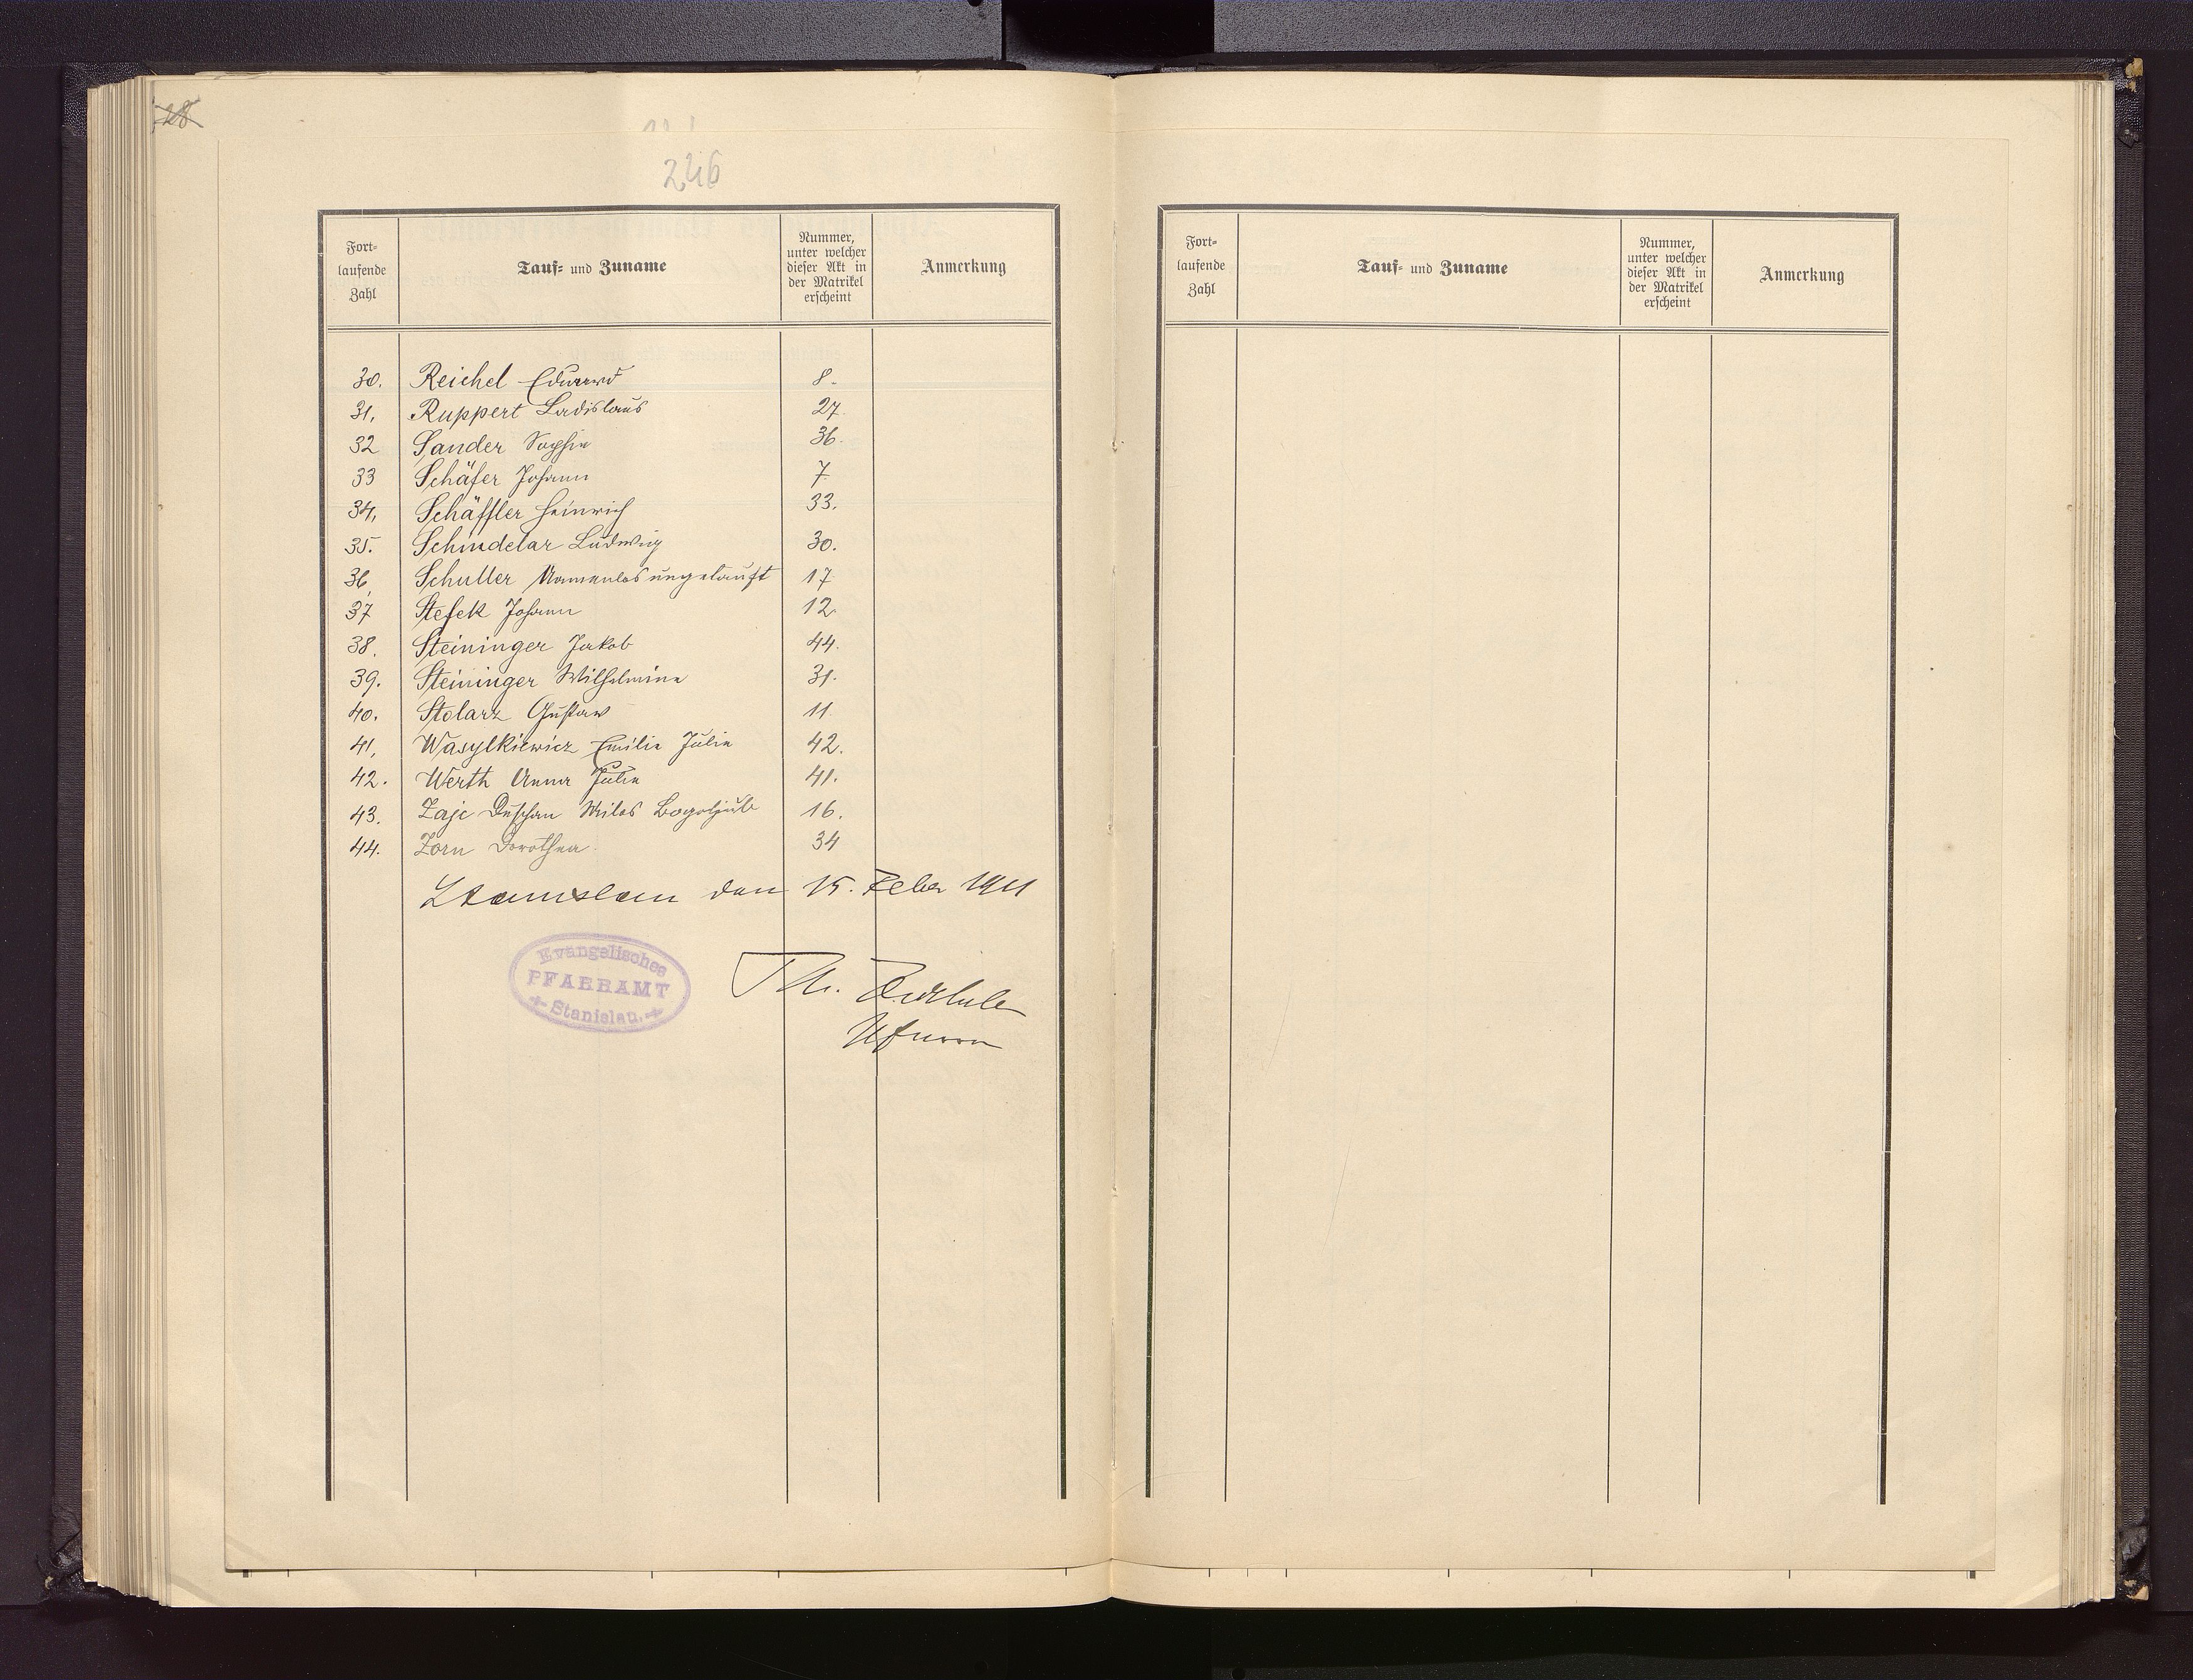 246
Fort-
laufende
Zahl
Tauf- und Zuname
Nummer,
unter welcher
dieser Akt in
der Matrikel
erscheint
Anmerkung
30. Reichel Eduard 8.
31. Ruppert Ladislaus 27.
32 Sander Sophie 36.
33 Schäfer Johann 7.
34. Schäffler Heinrich 33.
35. Schindelar Ludwig 30.
36 Schuller Namenlos ungetauft 17
37 Stefek Johann 12.
38. Steininger Jakob 44.
39. Steininger Wilhelmine 31.
40. Stolarz Gustaw 11.
41. Wasylkiewicz Emilie Julie 42.
42. Werth Anna Julie 41.
43. Zajc Duschan Milos Bogoljub 16.
44. Zorn Dorothea 34
Stanislau den 15. Feber 1911
Evangelisches
PFARRAMT
Stanislau.
Th. Zöckler
Pfarrer
Fort-
laufende
Zahl
Tauf- und Zuname
Nummer,
unter welcher
dieser Akt in
der Matrikel
erscheint
Anmerkung